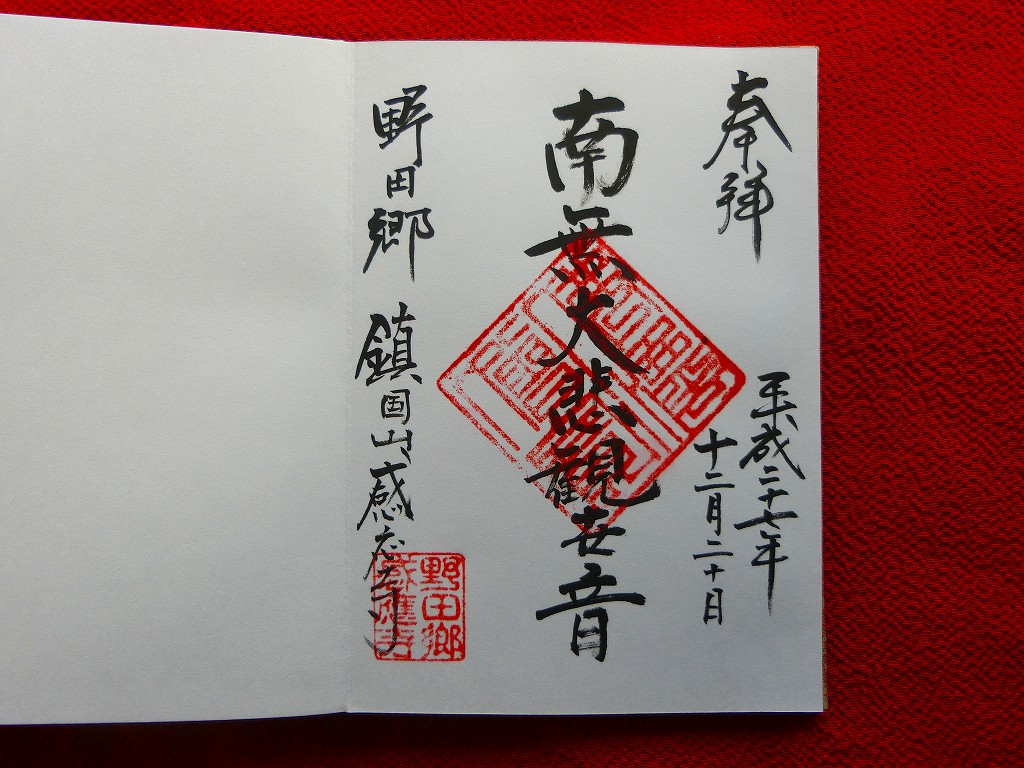 奉拝
平成二十七年
十二月二十日
南無大悲観世音
野田郷 鎮国山感応寺
野田郷
感應寺